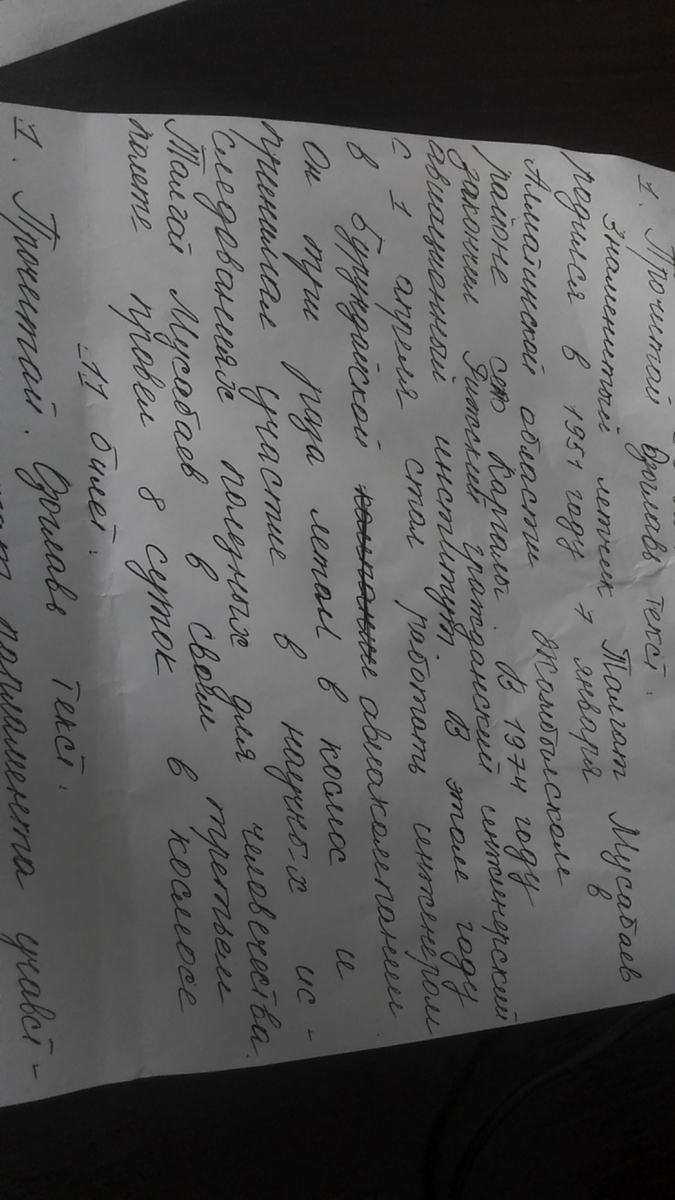 1. Прочитай озаглавь текст.
Знаменитый летчик Талгат Мусабаев
родился в 1951 году 7 января в
Алматинской области Жамбылском
районе село Каргалы. В 1974 году
закончил Рижский гражданский инженерский
авиационный институт. В этом году
с 1 апреля стал работать инженером
в Бурундайской авиакомпании.
Он три раза летал в космос и
принимал участие в научных ис-
следованиях полезных для человечества.
Талгат Мусабаев в своем третьем
полете провел 8 суток в космосе
11 билет.
1. Прочитай. Озаглавь текст.
парламента участ-